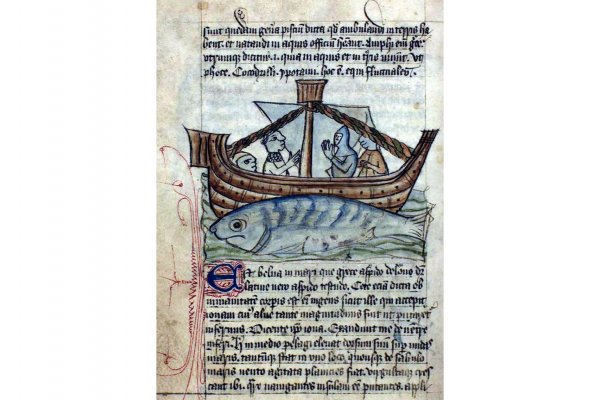 sunt quedam gen̄a pisciū dicta qđ ambulandi in terris ha
bent. et natandi in aquis officiū hēant. Amphi em̄ gre
utrumque dicitur .i. quia in aquis et in t̄ris uiuūt. Vt
phoce. Cocodrilli. ypotami. hoc ē. equi fluctuales.
Est belua in mari que grece aspido delone dr̄
latine uero aspido testudo. Cete eciā dicta ob
inmanitatem corpis est em̄ ingens sicut ille qui excepit
ionam cuiꝰ aluе tante magnitudinis fuit ut putaret
infernus. Dicente ip̄o iona. Exaudiuit me de uentre
inferi. h̄ in medio pelagi eleuat dorsum suū sup̄ undas
maris. tantumque stat in uno loco. quousque de sabulo
maris uento agitata planicies fiat. uirgultaque cres
cant ibi. Qr̄e nauigantes insulam eē putantes. appli